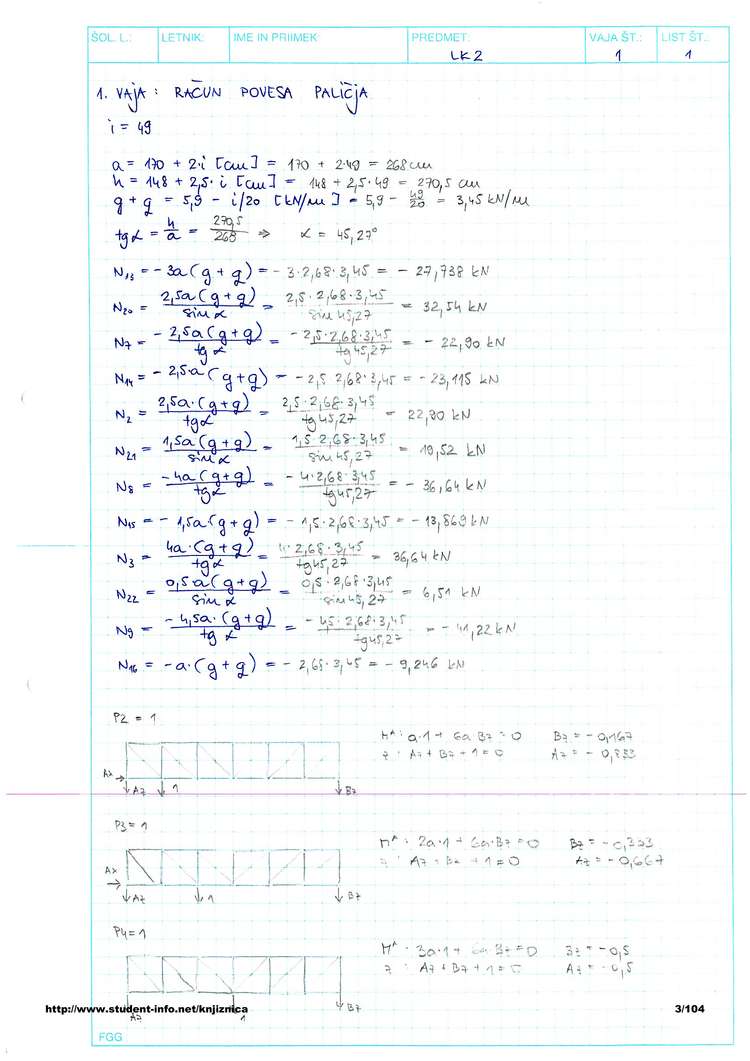 ŠOL. L.: LETNIK: IME IN PRIIMEK: PREDMET: VAJA ŠT.: LIST ŠT.:
LK2 1 1
1. VAJA: RAČUN POVESA PALIČJA
i = 49
a = 170 + 2·i [cm] = 170 + 2·49 = 268 cm
h = 148 + 2,5·i [cm] = 148 + 2,5·49 = 270,5 cm
g + q = 5,9 - i/20 [kN/m] = 5,9 - 49/20 = 3,45 kN/m
tgα = h/a = 270,5/268 ⇒ α = 45,27°
N13 = -3a(g+q) = -3·2,68·3,45 = -27,738 kN
N20 = 2,5a(g+q)/sinα = 2,5·2,68·3,45/sin45,27 = 32,54 kN
N7 = -2,5a(g+q)/tgα = -2,5·2,68·3,45/tg45,27 = -22,90 kN
N14 = -2,5·a(g+q) = -2,5 2,68·3,45 = -23,115 kN
N2 = 2,5a·(g+q)/tgα = 2,5·2,68·3,45/tg45,27 = 22,90 kN
N21 = 1,5a(g+q)/sinα = 1,5·2,68·3,45/sin45,27 = 19,52 kN
N8 = -4a(g+q)/tgα = -4·2,68·3,45/tg45,27 = -36,64 kN
N15 = -1,5a·(g+q) = -1,5·2,68·3,45 = -13,869 kN
N3 = 4a·(g+q)/tgα = 4·2,68·3,45/tg45,27 = 36,64 kN
N22 = 0,5a(g+q)/sinα = 0,5·2,68·3,45/sin45,27 = 6,51 kN
N9 = -4,5a·(g+q)/tgα = -45·2,68·3,45/tg45,27 = -41,22 kN
N16 = -a·(g+q) = -2,68·3,45 = -9,246 kN
P2 = 1
M^A: a·1 + 6a Bz = 0 Bz = -0,167
z: Az + Bz + 1 = 0 Az = -0,833
Ax
Az 1 Bz
P3 = 1
M^A: 2a·1 + 6a·Bz = 0 Bz = -0,333
z: Az + Bz + 1 = 0 Az = -0,667
Ax
Az 1 Bz
P4 = 1
M^A: 3a·1 + 6a Bz = 0 Bz = -0,5
z: Az + Bz + 1 = 0 Az = -0,5
http://www.student-info.net/knjiznica 3/104
Az 1 Bz
FGG